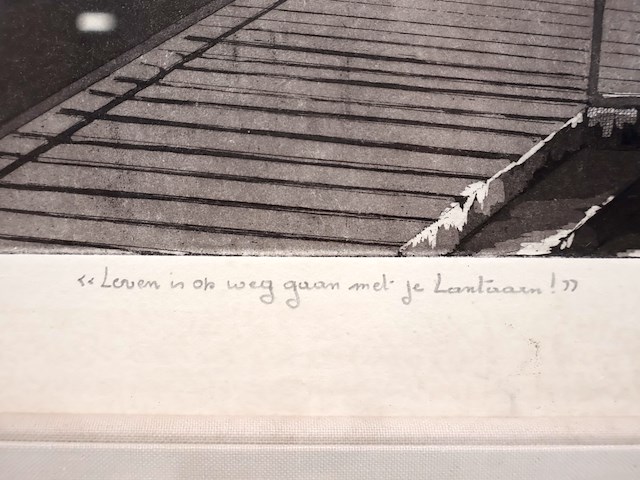 «Leven is op weg gaan met je Lantaarn!»